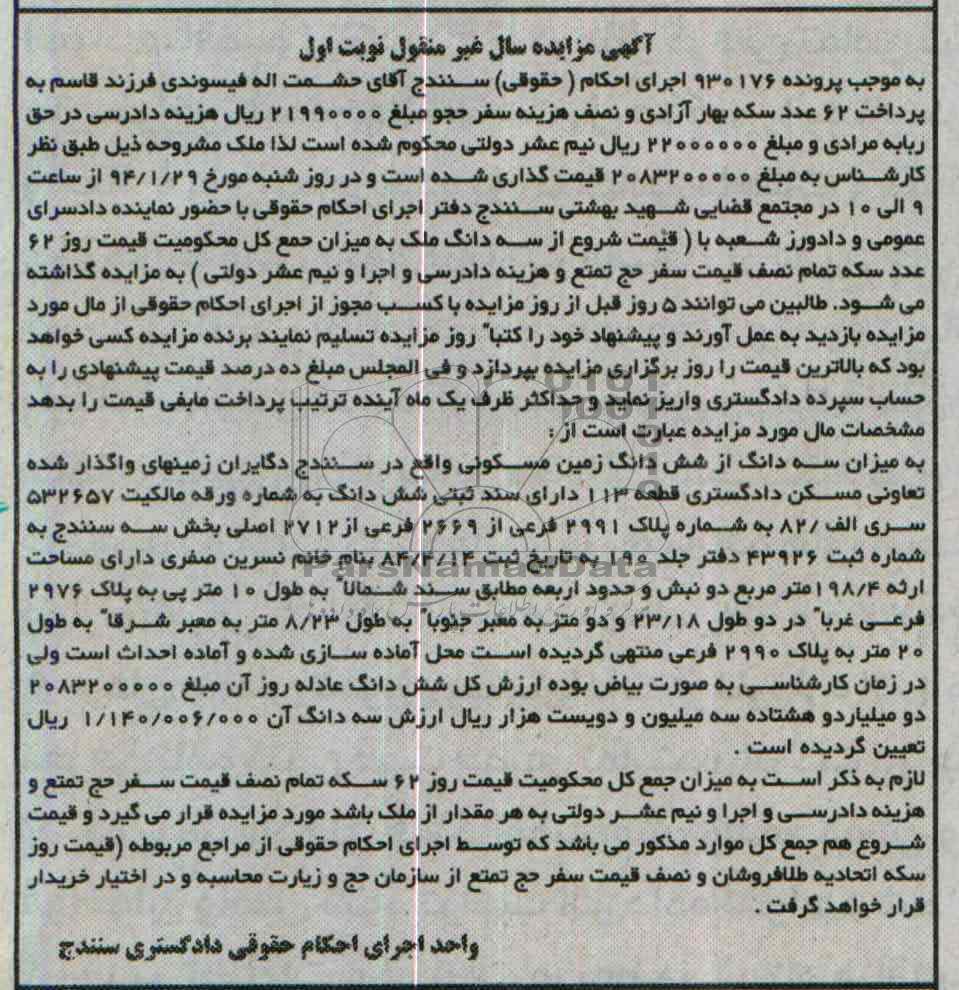 آگهی مزایده سال غیر منقول نوبت اول
به موجب پرونده ۹۳۰۱۷۶ اجرای احکام ( حقوقی) سنندج آقای حشمت اله فیسوندی فرزند قاسم به
پرداخت ۶۲ عدد سکه بهار آزادی و نصف هزینه سفر حجو مبلغ ۲۱۹۹۰۰۰۰ ریال هزینه دادرسی در حق
ربابه مرادی و مبلغ ۲۲۰۰۰۰۰۰ ریال نیم عشر دولتی محکوم شده است لذا ملک مشروحه ذیل طبق نظر
کارشناس به مبلغ ۲۰۸۳۲۰۰۰۰۰ قیمت گذاری شده است و در روز شنبه مورخ ۹۴/۱/۲۹ از ساعت
۹ الی ۱۰ در مجتمع قضایی شهید بهشتی سنندج دفتر اجرای احکام حقوقی با حضور نماینده دادسرای
عمومی و دادورز شعبه با ( قیمت شروع از سه دانگ ملک به میزان حمع کل محکومیت قیمت روز ۶۲
عدد سکه تمام نصف قیمت سفر حج تمتع و هزینه دادرسی و اجرا و نیم عشر دولتی ) به مزایده گذاشته
می شود. طالبین می توانند ۵ روز قبل از روز مزایده با کسب مجوز از اجرای احکام حقوقی از مال مورد
مزایده بازدید به عمل آورند و پیشنهاد خود را کتباً روز مزایده تسلیم نمایند برنده مزایده کسی خواهد
بود که بالاترین قیمت را روز برگزاری مزایده بپردازد و فی المجلس مبلغ ده درصد قیمت پیشنهادی را به
حساب سپرده دادگستری واریز نماید و حداکثر ظرف یک ماه آینده ترتیب پرداخت مابفی قیمت را بدهد
مشخصات مال مورد مزایده عبارت است از :
به میزان سه دانگ از شش دانگ زمین مسکونی واقع در سنندج دگایران زمینهای واگذار شده
تعاونی مسکن دادگستری قطعه ۱۱۳ دارای سند ثبتی شش دانگ به شماره ورقه مالکیت ۵۳۲۶۵۷
سری الف /۸۲ به شماره پلاک ۲۹۹۱ فرعی از ۲۶۶۹ فرعی از ۲۷۱۲ اصلی بخش سه سنندج به
شماره ثبت ۴۳۹۲۶ دفتر جلد ۱۹۰ به تاریخ ثبت ۸۴/۲/۱۴ بنام خانم نسرین صفری دارای مساحت
ارثه ۱۹۸/۴متر مربع دو نبش و حدود اربعه مطابق سند شمالاً به طول ۱۰ متر پی به پلاک ۲۹۷۶
فرعی غرباً در دو طول ۲۳/۱۸ و دو متر به معبر جنوباً به طول ۸/۲۳ متر به معبر شرقاً به طول
۲۰ متر به پلاک ۲۹۹۰ فرعی منتهی گردیده است محل آماده سازی شده و آماده احداث است ولی
در زمان کارشناسی به صورت بیاض بوده ارزش کل شش دانگ عادله روز آن مبلغ ۲۰۸۳۲۰۰۰۰۰
دو میلیاردو هشتاده سه میلیون و دویست هزار ریال ارزش سه دانگ آن ۱/۱۴۰/۰۰۶/۰۰۰ ریال
تعیین گردیده است .
لازم به ذکر است به میزان جمع کل محکومیت قیمت روز ۶۲ سکه تمام نصف قیمت سفر حج تمتع و
هزینه دادرسی و اجرا و نیم عشر دولتی به هر مقدار از ملک باشد مورد مزایده قرار می گیرد و قیمت
شروع هم جمع کل موارد مذکور می باشد که توسط اجرای احکام حقوقی از مراجع مربوطه (قیمت روز
سکه اتحادیه طلافروشان و نصف قیمت سفر حج تمتع از سازمان حج و زیارت محاسبه و در اختیار خریدار
قرار خواهد گرفت .
واحد اجرای احکام حقوقی دادگستری سنندج
ParsNamadData